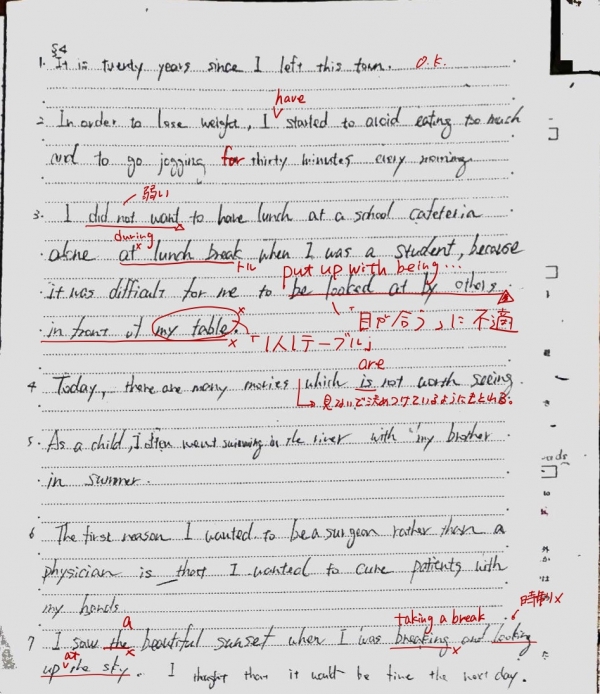 §4
1. It is twenty years since I left this town. O.K.
have
2 In order to lose weight, I started to avoid eating too much
and to go jogging for thirty minutes every morning.
弱い
3. I did not want to have lunch at a school cafeteria
during
alone at lunch break when I was a student, because
トル
put up with being...
it was difficult for me to be looked at by others
in front of my table.
「目が合う」に不適
「1人1テーブル」
are
4 Today, there are many movies which is not worth seeing.
5. As a child, I often went swimming in the river with my brother
in summer.
6 The first reason I wanted to be a surgeon rather than a
physician is that I wanted to cure patients with
my hands.
時制×
a
taking a break
7 I saw the beautiful sunset when I was breaking and looking
at
up the sky. I thought that it would be fine the next day.